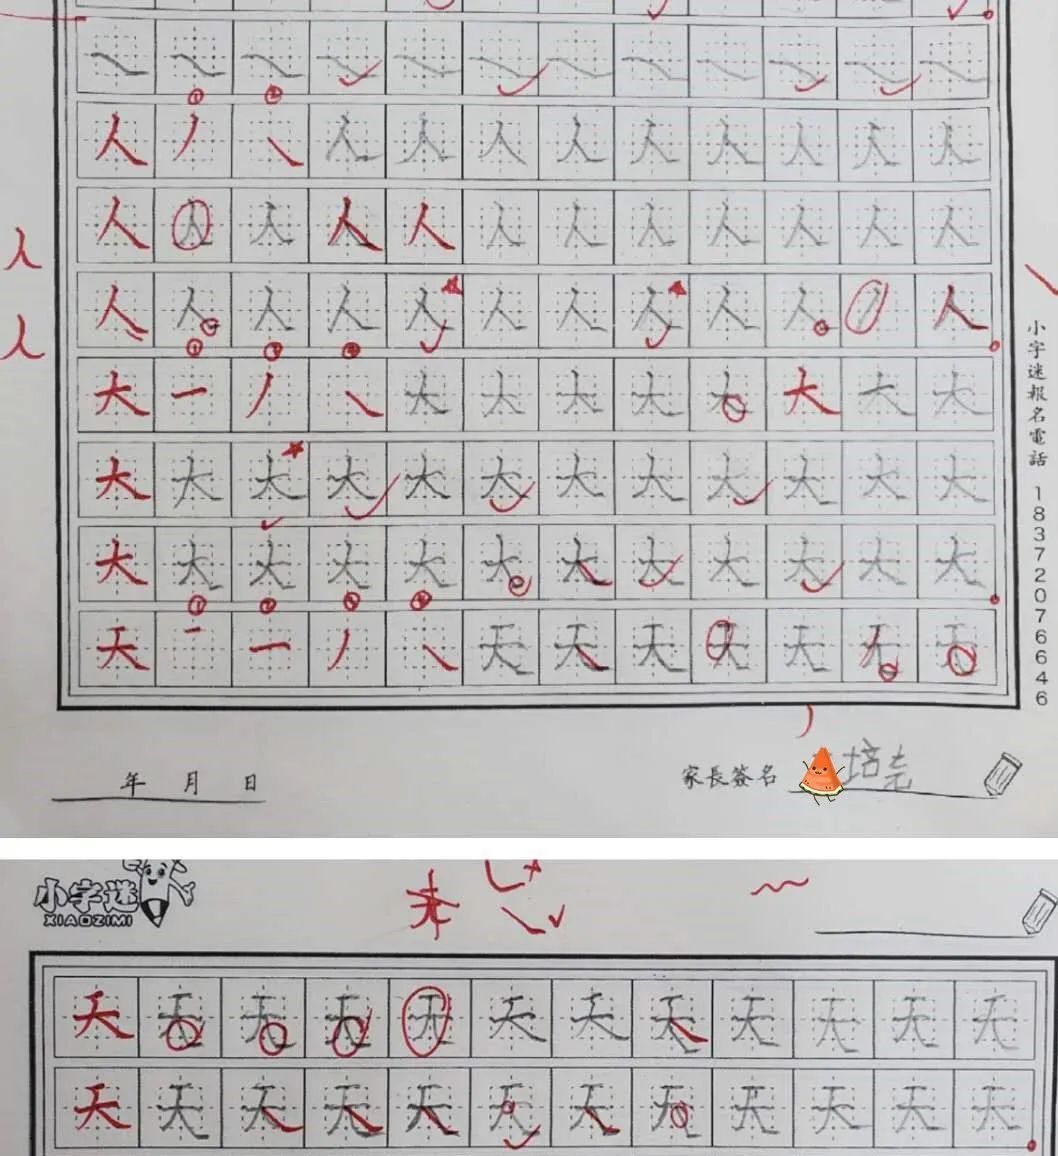 人 人 人 人 人 人 人 人 人 人
人 人 人 人 人 人 人 人 人 人 人 人
人
人 人 人 人 人 人 人 人 人 人 人 人
人
大 一 大 大 大 大 大 大 大 大
大 大 大 大 大 大 大 大 大 大 大 大
大 大 大 大 大 大 大 大 大 大 大 大
天 一 天 天 天 天 天 天 天
小字迷報名電話 18372076646
年 月 日
家長簽名 培尧
小字迷
XIAOZIMI
天 天 天 天 天 天 天 天 天 天 天 天
天 天 天 天 天 天 天 天 天 天 天 天